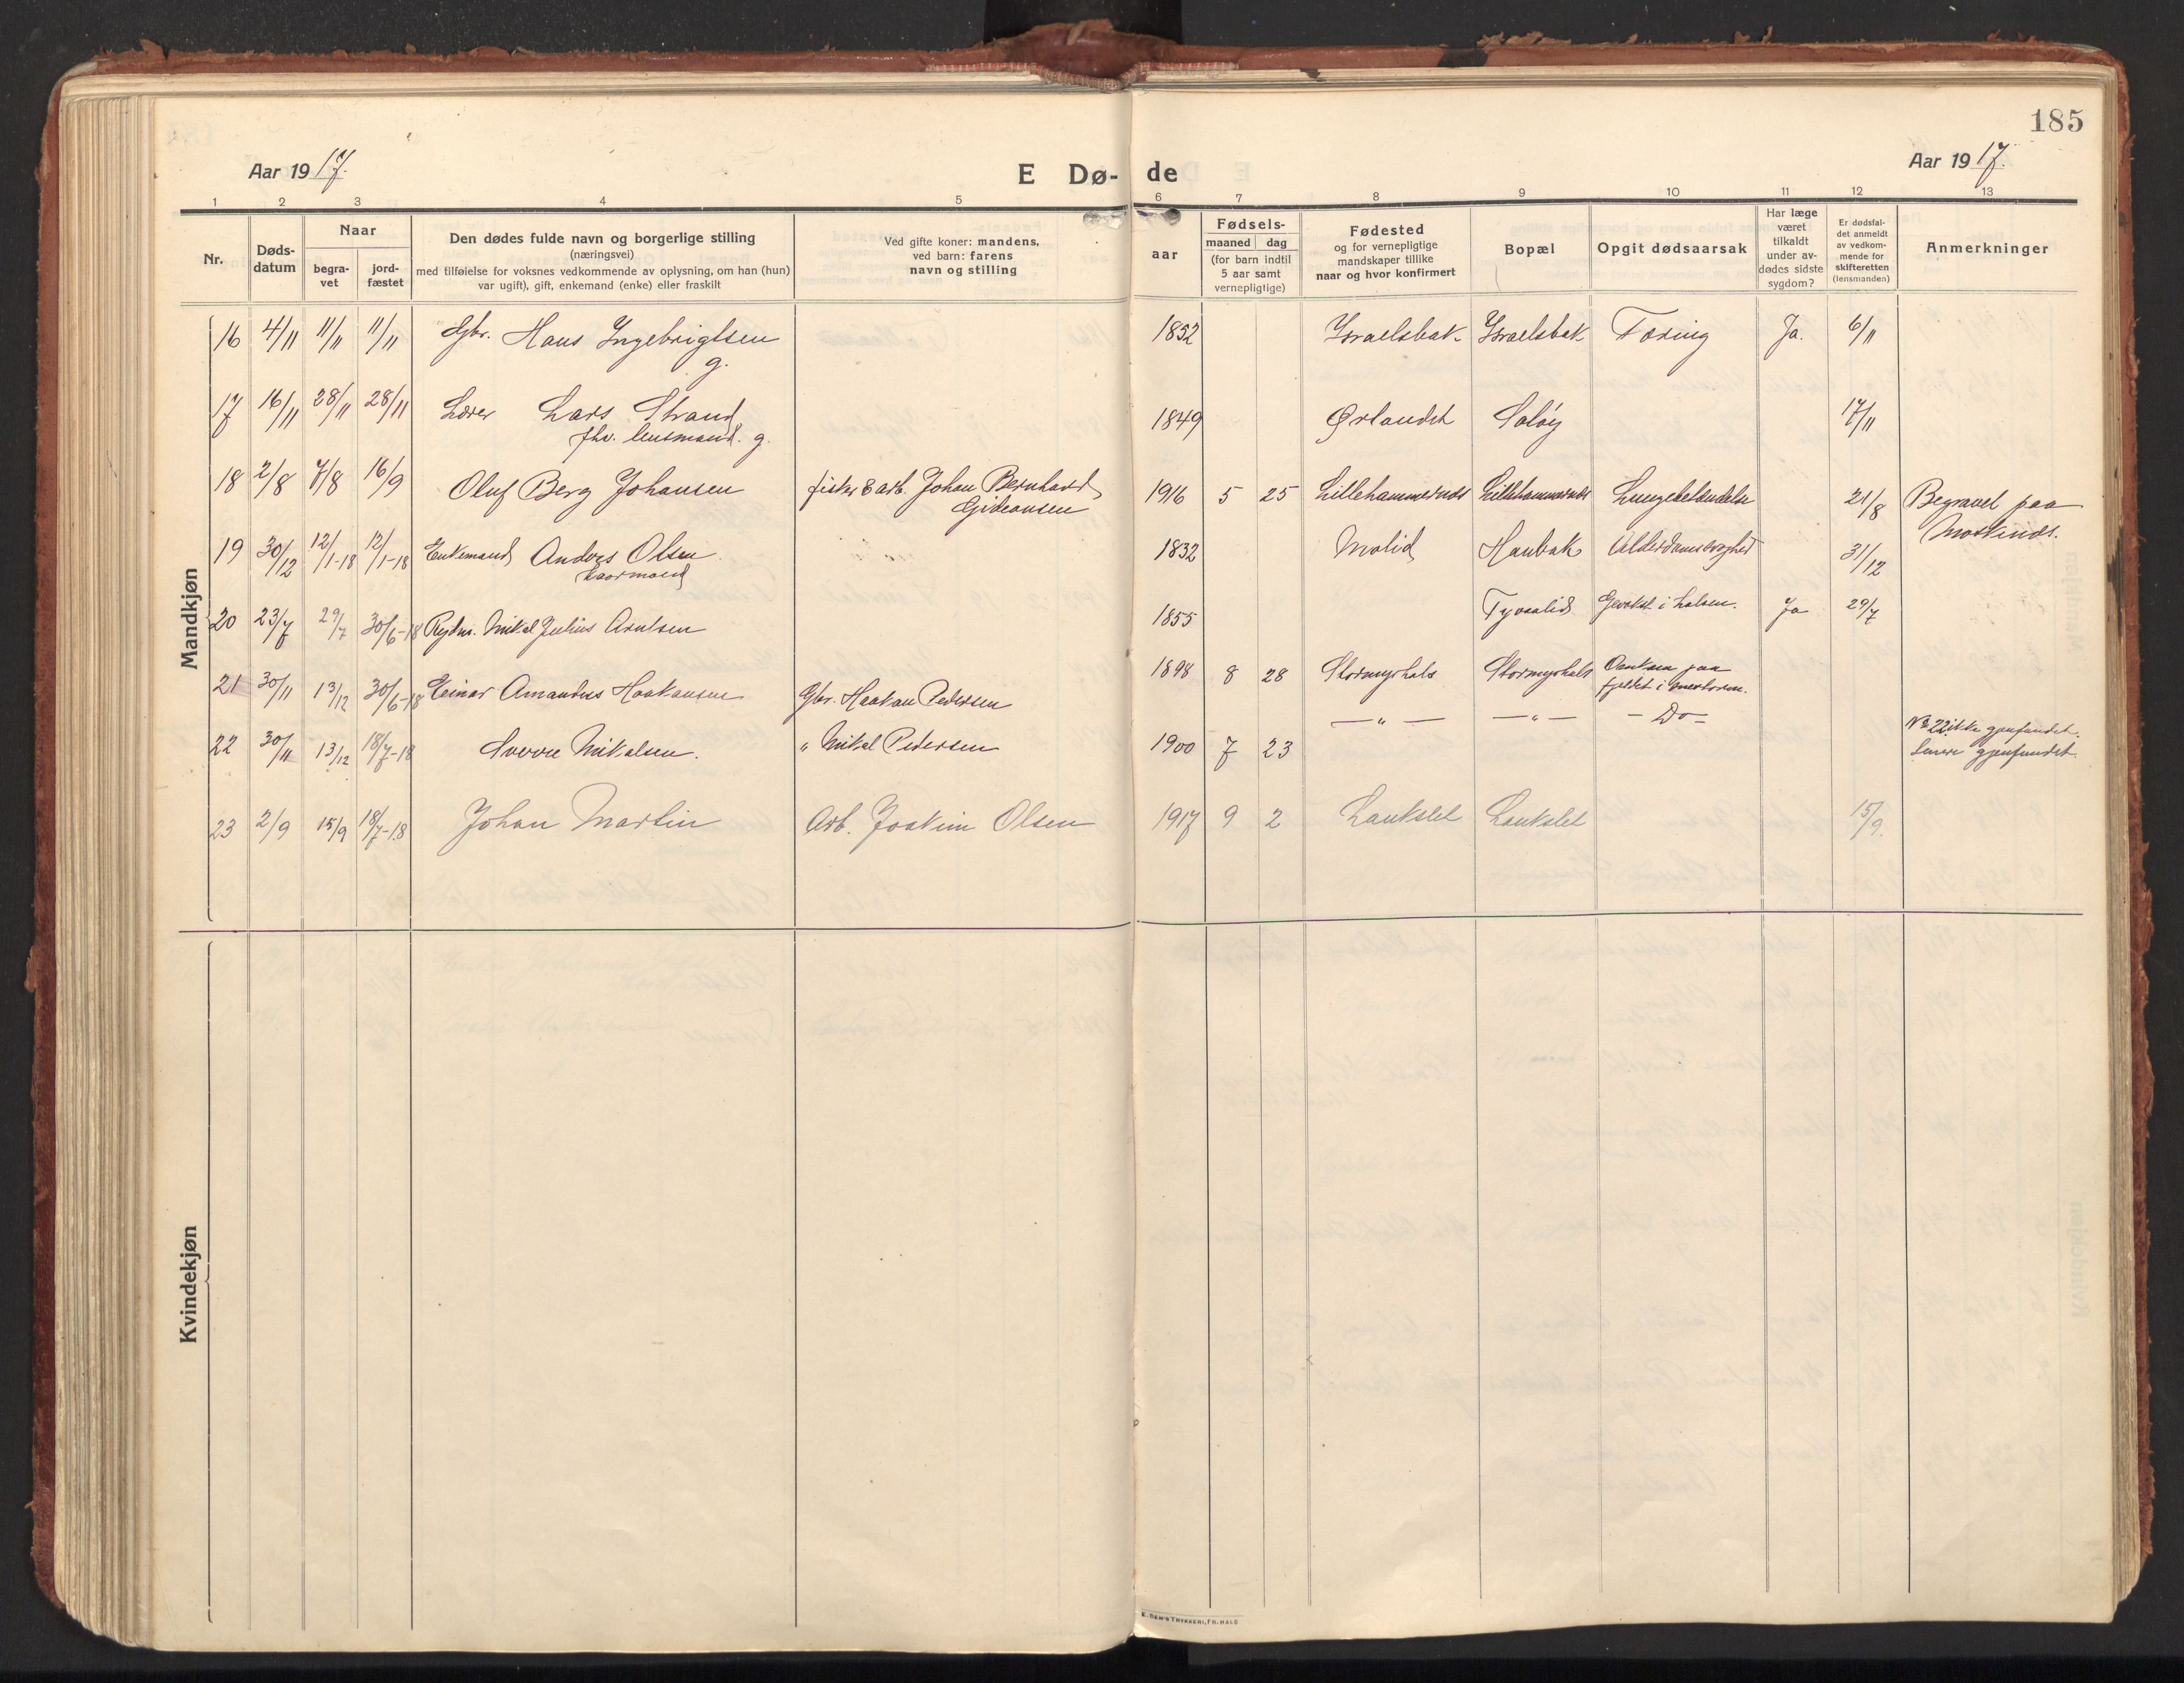 185
Aar 1917.
E Dø- de
Aar 1917.
1 2 3 4 5 6 7 8 9 10 11 12 13
Nr.
Døds-
datum
Naar
begra-
vet
jord-
fæstet
Den dødes fulde navn og borgerlige stilling
(næringsvei)
med tilføielse for voksnes vedkommende av oplysning, om han (hun)
var ugift), gift, enkemand (enke) eller fraskilt
Ved gifte koner: mandens,
ved barn: farens
navn og stilling
aar
Fødsels-
maaned dag
(for barn indtil
5 aar samt
vernepligtige)
Fødested
og for vernepligtige
mandskaper tillike
naar og hvor konfirmert
Bopæl
Opgit dødsaarsak
Har læge
været
tilkaldt
under av-
dødes sidste
sygdom?
Er dødsfal-
det anmeldt
av vedkom-
mende for
skifteretten
(lensmanden)
Anmerkninger
Mandkjøn
16 4/11 11/11 11/11 Gbr. Hans Ingebrigtsen 1852 Israelsbak Israelsbak Tæring Ja. 6/11
g.
17 16/11 28/11 28/11 Lærer Lars Strand 1849 Ørlandet Saløy 17/11
fhv. lensmand. g.
18 2/8 7/8 16/9 Oluf Berg Johansen fisker & arb. Johan Bernhard 1916 5 25 Lillehammernes Lillehammernes Lungebetændelse 21/8 Begravet paa
Gideonsen
19 30/12 12/1-18 12/1-18 Enkemand Anders Olsen 1832 Molid Haubak Alderdomssvaghed 31/12
kaarmand
20 23/7 29/7 30/6-18 Rydm. Mikal Julius Arntsen 1855 Tyvaalid Gevækst i halsen. Ja 29/7
21 30/11 13/12 30/6-18 Einar Amandus Haakonsen Gbr. Haakon Pedersen 1898 8 28 Stormyrhals Stormyrhals Omkom paa
fjeldet i snestorm.
22 30/11 13/12 18/7-18 Sverre Mikalsen. " Mikal Pedersen 1900 7 23 — " — — " — — Do — No 22 ikke gjenfundet.
Senere gjenfundet.
23 2/9 15/9 18/7-18 Johan Martin Arb. Joakim Olsen 1917 9 2 Laukslet Laukslet 15/9.
Kvindekjøn
E. SEM'S TRYKKERI, FR.HALD